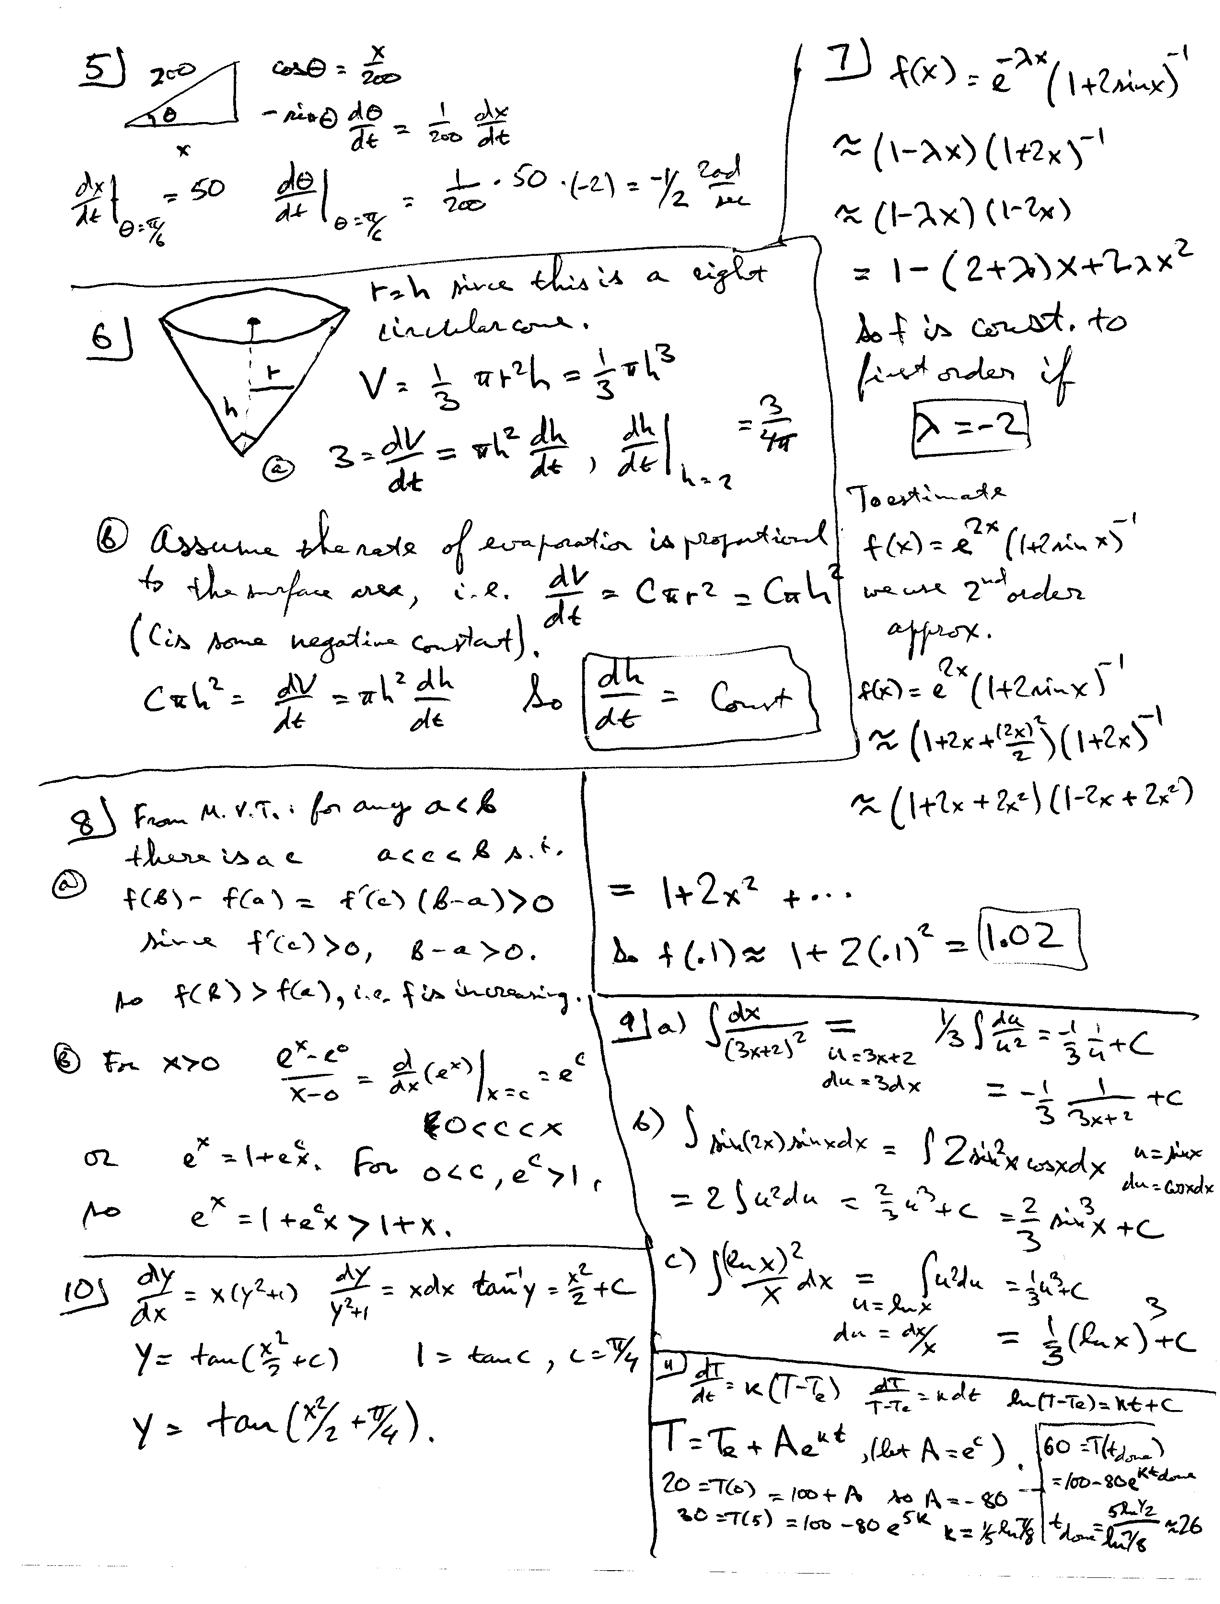 5] 200 θ x
cosθ = x/200
-sinθ dθ/dt = 1/200 dx/dt
dx/dt|θ=π/6 = 50   dθ/dt|θ=π/6 = 1/200 · 50 · (-2) = -1/2 rad/sec
6] r h
r=h since this is a right
circular cone.
V = 1/3 πr²h = 1/3 πh³
ⓐ 3 = dV/dt = πh² dh/dt , dh/dt|h=2 = 3/4π
ⓑ Assume the rate of evaporation is proportional
to the surface area, i.e. dV/dt = Cπr² = Cπh²
(C is some negative constant).
Cπh² = dV/dt = πh² dh/dt   So dh/dt = Const
7] f(x) = e^-λx (1+2sinx)^-1
≈ (1-λx)(1+2x)^-1
≈ (1-λx)(1-2x)
= 1-(2+λ)x+2λx²
So f is const. to
first order if
λ = -2
To estimate
f(x) = e^2x (1+2sin x)^-1
we use 2nd order
approx.
f(x) = e^2x (1+2sinx)^-1
≈ (1+2x+(2x)²/2)(1+2x)^-1
≈ (1+2x+2x²)(1-2x+2x²)
= 1+2x² + ...
So f(.1) ≈ 1+2(.1)² = 1.02
8] From M.V.T.: for any a<b
there is a c   a<c<b s.t.
ⓐ f(b)-f(a) = f'(c)(b-a)>0
since f'(c)>0, b-a>0.
so f(b)>f(a), i.e. f is increasing.
ⓑ For x>0   e^x-e^0/x-0 = d/dx(e^x)|x=c = e^c
0<c<x
or   e^x = 1+e^c x. For 0<c, e^c>1,
so   e^x = 1+e^c x > 1+x.
9] a) ∫dx/(3x+2)² = 1/3 ∫du/u² = -1/3 1/u + C
u=3x+2
du=3dx
= -1/3 1/3x+2 + C
b) ∫sin(2x)sinxdx = ∫2sin²x cosxdx   u=sinx
du=cosxdx
= 2∫u²du = 2/3 u³+C = 2/3 sin³x + C
c) ∫(lnx)²/x dx = ∫u²du = 1/3u³+C
u=lnx
du = dx/x
= 1/3(lnx)³+C
10] dy/dx = x(y²+1)   dy/y²+1 = xdx   tan^-1 y = x²/2 + C
y = tan(x²/2 + C)   1 = tanC, C=π/4
y = tan(x²/2 + π/4).
11] dT/dt = k(T-Te)   dT/T-Te = kdt   ln(T-Te)=kt+C
T = Te + Ae^kt, (let A=e^c).
20=T(0) = 100+A   so A=-80
30=T(5) = 100-80e^5k   k=1/5 ln7/8
60=T(tdone)
=100-80e^ktdone
tdone = 5ln1/2/ln7/8 ≈26